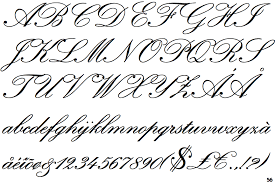 ABCDEFGHI
JKLMNOPQRS
TUVWXYZÀÅ
abcdefghijklmnopqrstuvwxyzà
åéîõø&1234567890($£€.,!?)
56